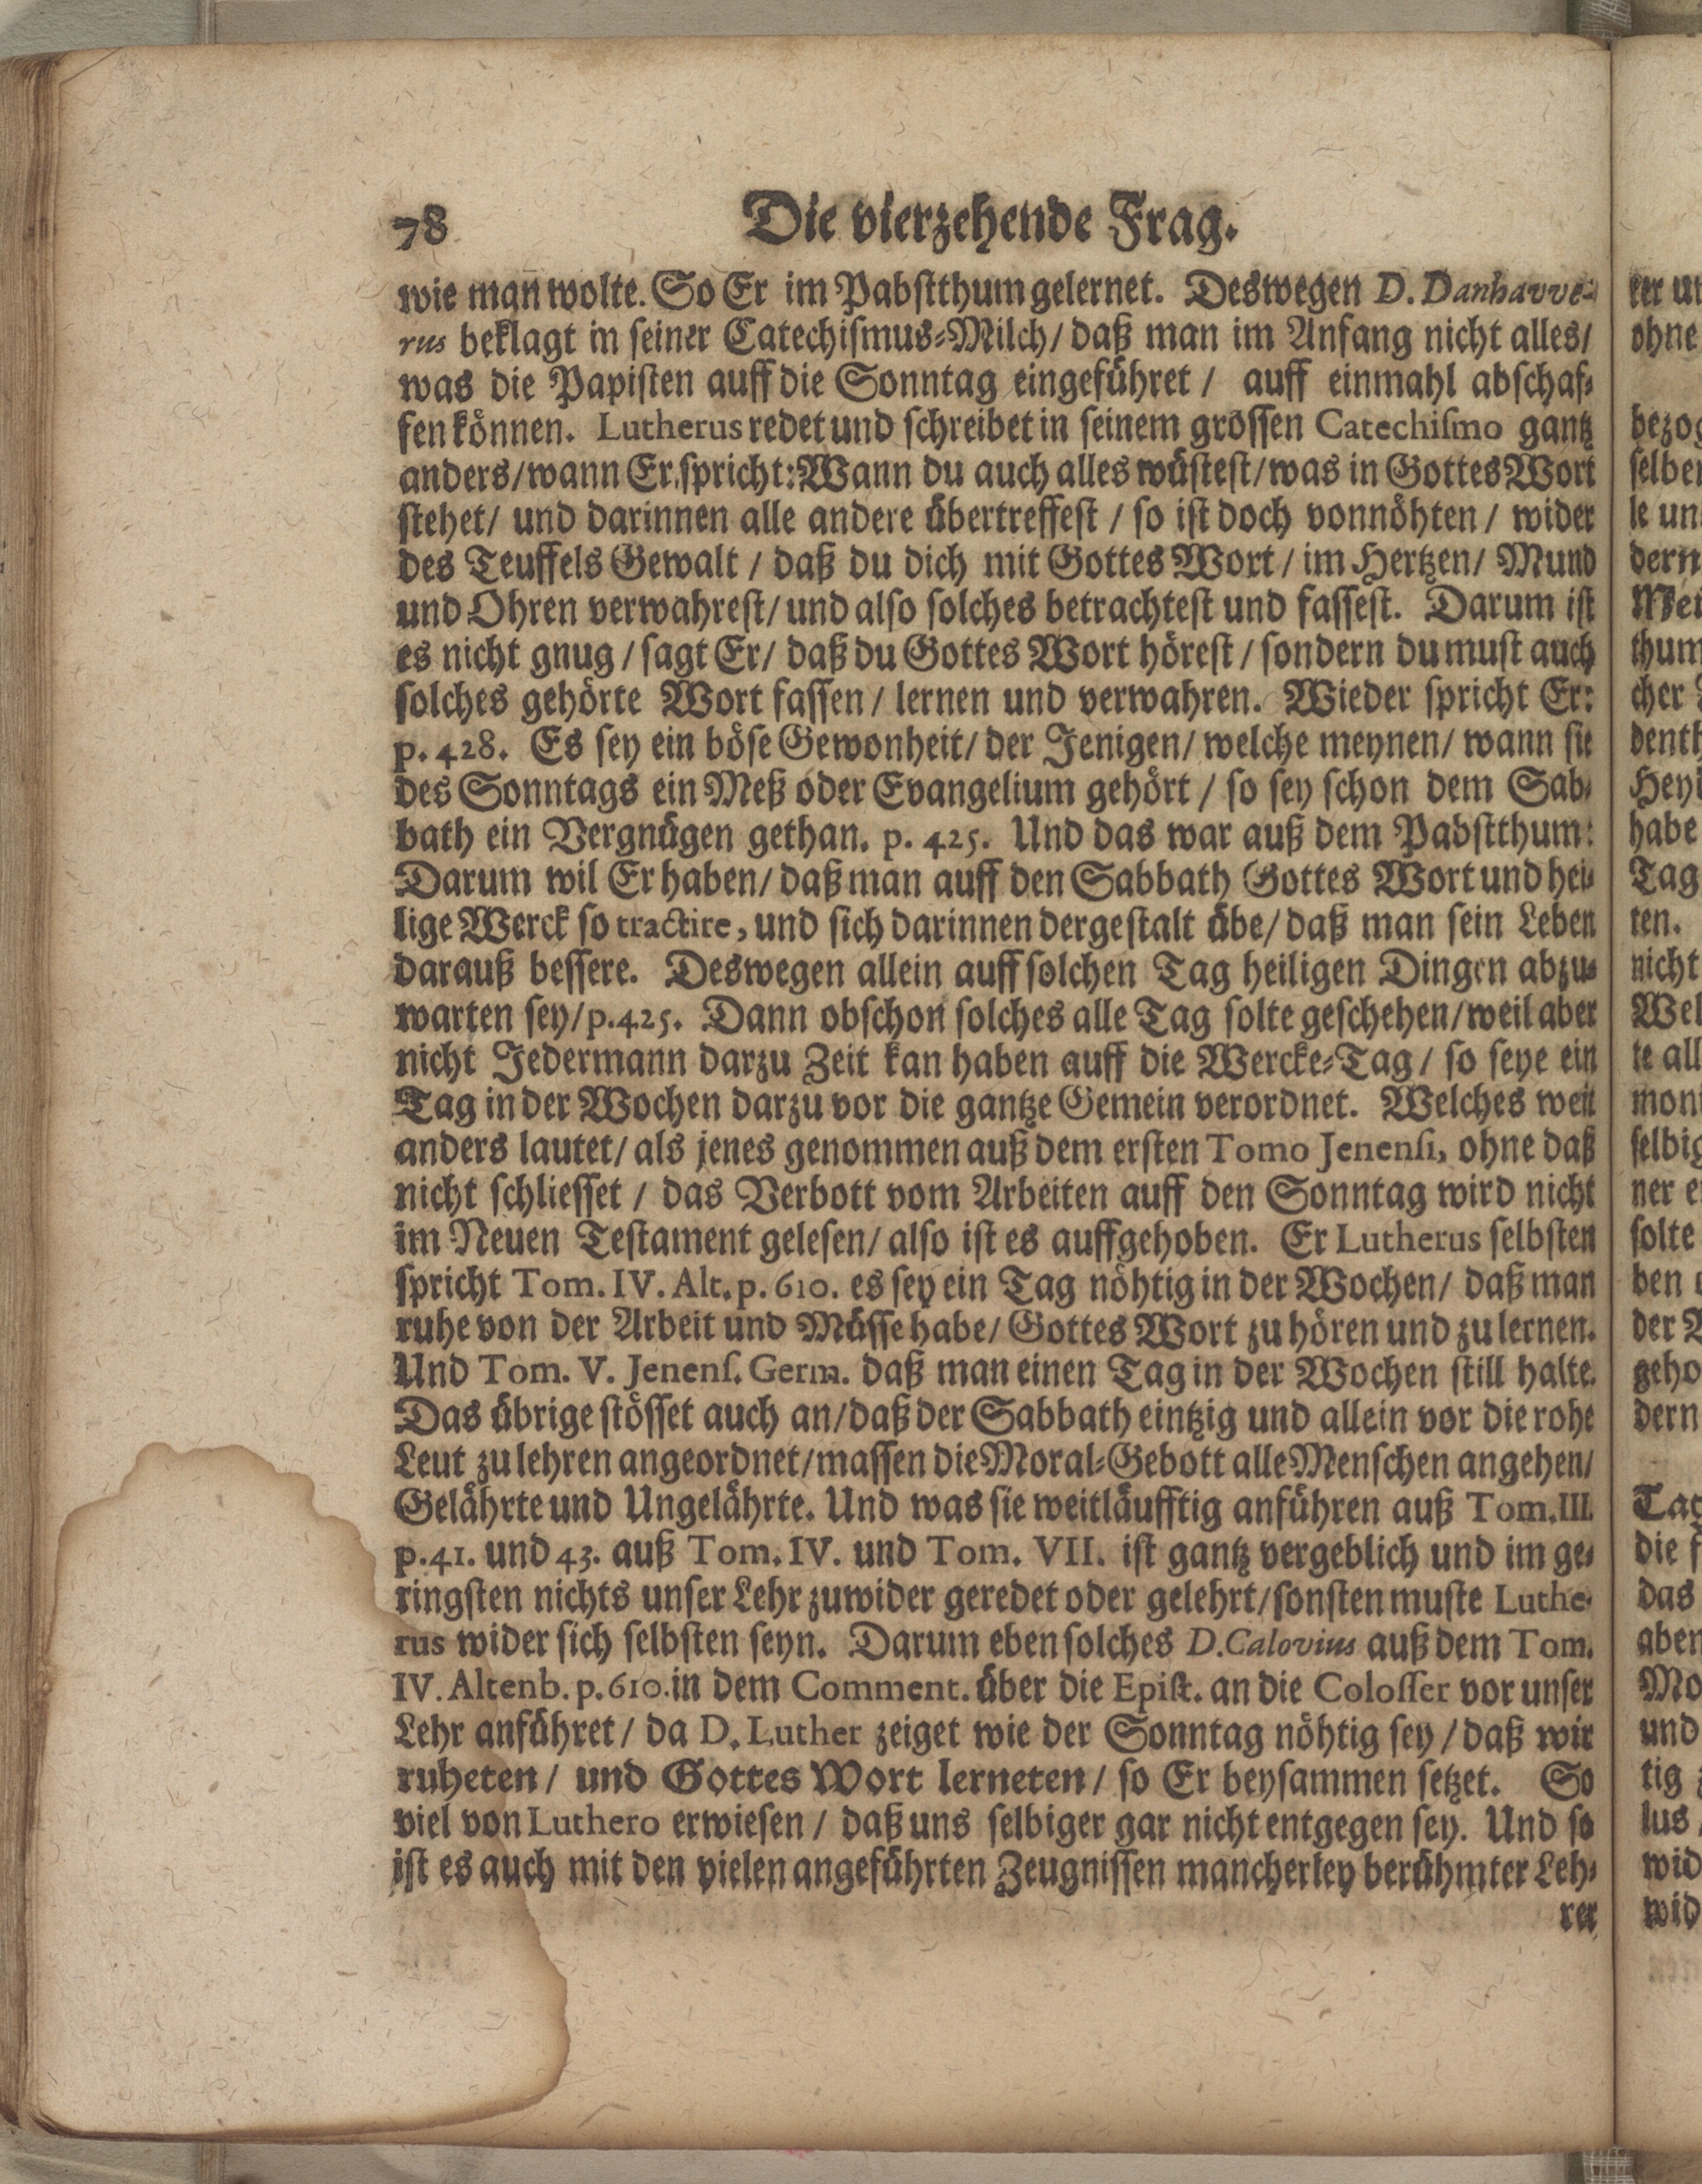 78 Die vierzehende Frag.
wie mañ wolte. So Er im Pabstthum gelernet. Deswegen D. Danhavve-
rus beklagt in seiner Catechismus-Milch/ daß man im Anfang nicht alles/
was die Papisten auff die Sonntag eingeführet / auff einmahl abschaf-
fen können. Lutherus redet und schreibet in seinem grossen Catechismo gantz
anders/wann Er spricht: Wann du auch alles wüstest/was in Gottes Wort
stehet/ und darinnen alle andere übertreffest / so ist doch vonnöhten / wider
des Teuffels Gewalt / daß du dich mit Gottes Wort / im Hertzen/ Mund
und Ohren verwahrest/ und also solches betrachtest und fassest. Darum ist
es nicht gnug / sagt Er/ daß du Gottes Wort hörest / sondern du must auch
solches gehörte Wort fassen / lernen und verwahren. Wieder spricht Er:
p. 428. Es sey ein böse Gewonheit/ der Jenigen/ welche meynen/ wann sie
des Sonntags ein Meß oder Evangelium gehört / so sey schon dem Sab-
bath ein Vergnügen gethan. p. 425. Und das war auß dem Pabstthum:
Darum wil Er haben/ daß man auff den Sabbath Gottes Wort und hei-
lige Werck so tractire, und sich darinnen dergestalt übe/ daß man sein Leben
darauß bessere. Deswegen allein auff solchen Tag heiligen Dingen abzu-
warten sey/p.425. Dann obschon solches alle Tag solte geschehen/weil aber
nicht Jedermann darzu Zeit kan haben auff die Wercke-Tag / so seye ein
Tag in der Wochen darzu vor die gantze Gemein verordnet. Welches weit
anders lautet/ als jenes genommen auß dem ersten Tomo Jenensi, ohne daß
nicht schliesset / das Verbott vom Arbeiten auff den Sonntag wird nicht
im Neuen Testament gelesen/ also ist es auffgehoben. Er Lutherus selbsten
spricht Tom. IV. Alt. p. 610. es sey ein Tag nöhtig in der Wochen/ daß man
ruhe von der Arbeit und Müsse habe/ Gottes Wort zu hören und zu lernen.
Und Tom. V. Jenens. Germ. daß man einen Tag in der Wochen still halte.
Das übrige stösset auch an/daß der Sabbath eintzig und allein vor die rohe
Leut zu lehren angeordnet/massen die Moral-Gebott alle Menschen angehen/
Gelährte und Ungelährte. Und was sie weitläufftig anführen auß Tom.III.
p.41. und 43. auß Tom. IV. und Tom. VII. ist gantz vergeblich und im ge-
ringsten nichts unser Lehr zuwider geredet oder gelehrt/sonsten muste Luthe-
rus wider sich selbsten seyn. Darum eben solches D.Calovius auß dem Tom.
IV. Altenb. p. 610. in dem Comment. über die Epist. an die Colosser vor unser
Lehr anführet / da D. Luther zeiget wie der Sonntag nöhtig sey / daß wir
ruheten / und Gottes Wort lerneten / so Er beysammen setzet. So
viel von Luthero erwiesen / daß uns selbiger gar nicht entgegen sey. Und so
ist es auch mit den vielen angeführten Zeugnissen mancherley berühmter Leh-
rer